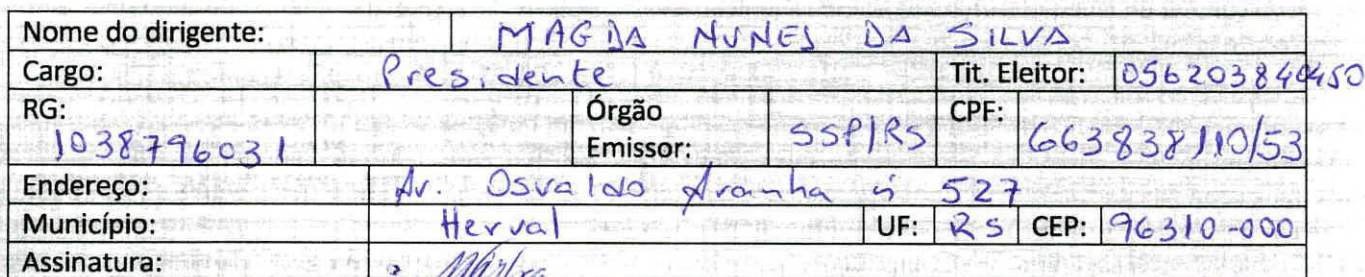 Nome do dirigente: MAGDA NUNES DA SILVA
Cargo: Presidente Tit. Eleitor: 056203840450
RG: Órgão CPF:
1038796031 Emissor: SSP/RS 663838110/53
Endereço: Av. Osvaldo Aranha nº 527
Município: Herval UF: RS CEP: 96310-000
Assinatura: